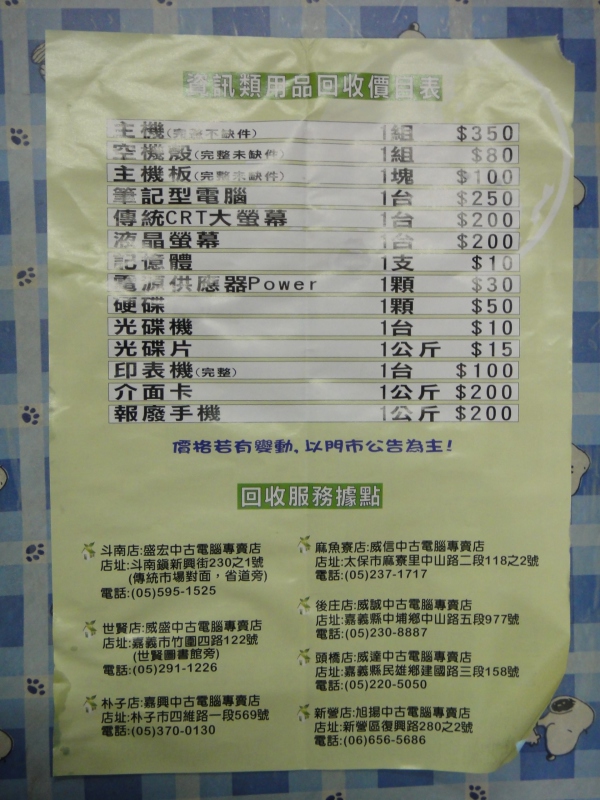 資訊類用品回收價目表
主機(完整不缺件) 1組 $350
空機殼(完整未缺件) 1組 $80
主機板(完整未缺件) 1塊 $100
筆記型電腦 1台 $250
傳統CRT大螢幕 1台 $200
液晶螢幕 1台 $200
記憶體 1支 $10
電源供應器Power 1顆 $30
硬碟 1顆 $50
光碟機 1台 $10
光碟片 1公斤 $15
印表機(完整) 1台 $100
介面卡 1公斤 $200
報廢手機 1公斤 $200
價格若有變動,以門市公告為主!
回收服務據點
斗南店:盛宏中古電腦專賣店
店址:斗南鎮新興街230之1號
(傳統市場對面,省道旁)
電話:(05)595-1525
世賢店:威盛中古電腦專賣店
店址:嘉義市竹圍四路122號
(世賢圖書館旁)
電話:(05)291-1226
朴子店:嘉興中古電腦專賣店
店址:朴子市四維路一段569號
電話:(05)370-0130
麻魚寮店:威信中古電腦專賣店
店址:太保市麻寮里中山路二段118之2號
電話:(05)237-1717
後庄店:威誠中古電腦專賣店
店址:嘉義縣中埔鄉中山路五段977號
電話:(05)230-8887
頭橋店:威達中古電腦專賣店
店址:嘉義縣民雄鄉建國路三段158號
電話:(05)220-5050
新營店:旭揚中古電腦專賣店
店址:新營區復興路280之2號
電話:(06)656-5686